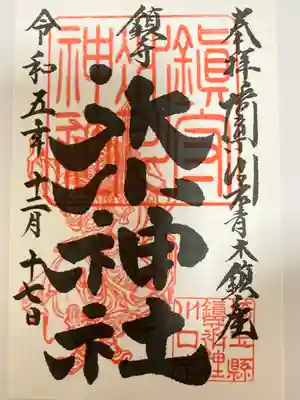 奉拝 埼玉県川口市青木鎮座
鎮守
氷川神社
令和五年十二月十七日
鎮守
氷川
神社